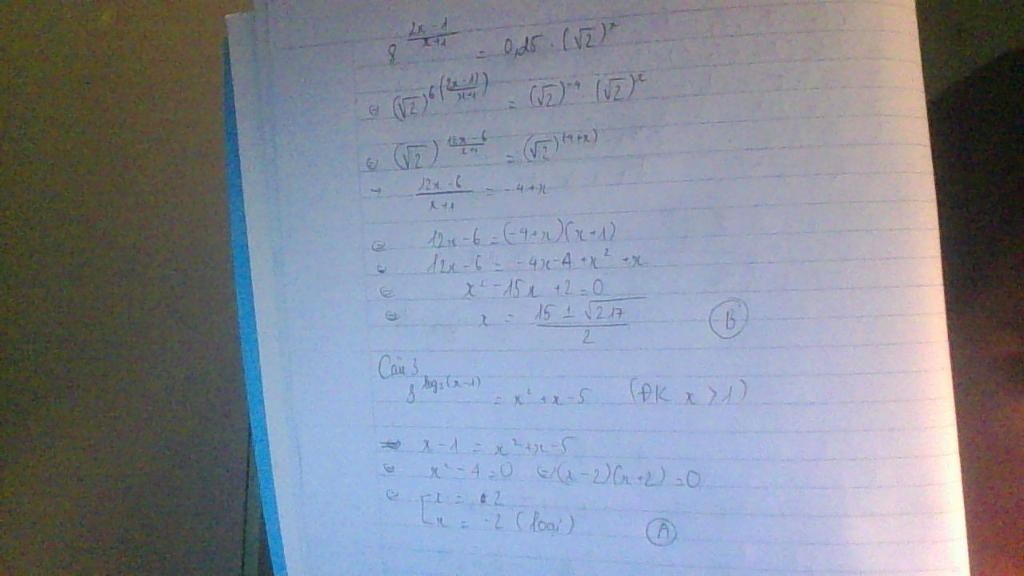 8^{\frac{2x-1}{x+1}} = 0,25 . (√2)^x
⇔ (√2)^{6(\frac{2x-1}{x+1})} = (√2)^{-4} (√2)^x
⇔ (√2)^{\frac{12x-6}{x+1}} = (√2)^{(-4+x)}
→ \frac{12x-6}{x+1} = -4+x
⇔ 12x-6 = (-4+x)(x+1)
⇔ 12x-6 = -4x-4+x²+x
⇔ x²-15x+2=0
⇔ x = \frac{15 ± √217}{2} B
Câu 3
= x²+x-5 (ĐK x > 1)
x-1 = x²+x-5
⇔ x²-4=0 ⇔ (x-2)(x+2)=0
⇔ [x = 2
[x = -2 (loại) A